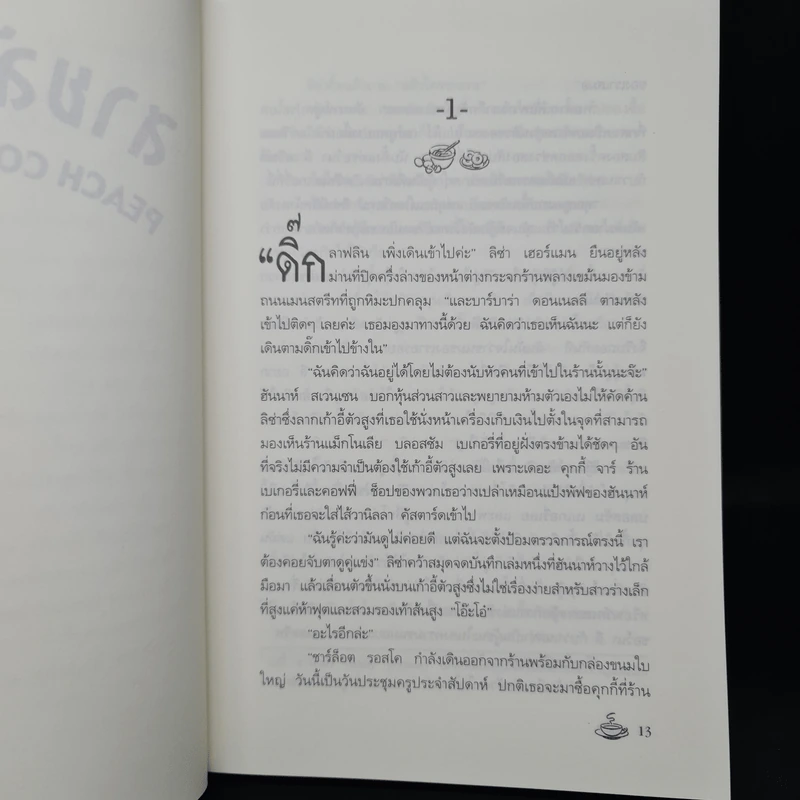 สายลั
PEACH CO
-1-
“ดิ๊ก ลาฟลิน เพิ่งเดินเข้าไปค่ะ” ลิซ่า เฮอร์แมน ยืนอยู่หลัง
ม่านที่ปิดครึ่งล่างของหน้าต่างกระจกร้านพลางเขม้นมองข้าม
ถนนเมนสตรีทที่ถูกหิมะปกคลุม “และบาร์บาร่า ดอนเนลลี ตามหลัง
เข้าไปติดๆ เลยค่ะ เธอมองมาทางนี้ด้วย ฉันคิดว่าเธอเห็นฉันนะ แต่ก็ยัง
เดินตามดิ๊กเข้าไปข้างใน”
“ฉันคิดว่าฉันอยู่ได้โดยไม่ต้องนับหัวคนที่เข้าไปในร้านนั้นนะจ๊ะ”
ฮันนาห์ สเวนเซน บอกหุ้นส่วนสาวและพยายามห้ามตัวเองไม่ให้คัดค้าน
ลิซ่าซึ่งลากเก้าอี้ตัวสูงที่เธอใช้นั่งหน้าเครื่องเก็บเงินไปตั้งในจุดที่สามารถ
มองเห็นร้านแม็กโนเลีย บลอสซัม เบเกอรี่ที่อยู่ฝั่งตรงข้ามได้ชัดๆ อัน
ที่จริงไม่มีความจำเป็นต้องใช้เก้าอี้ตัวสูงเลย เพราะเดอะ คุกกี้ จาร์ ร้าน
เบเกอรี่และคอฟฟี่ ช็อปของพวกเธอว่างเปล่าเหมือนแป้งพัฟของฮันนาห์
ก่อนที่เธอจะใส่ไส้วานิลลา คัสตาร์ดเข้าไป
“ฉันรู้ค่ะว่ามันดูไม่ค่อยดี แต่ฉันจะตั้งป้อมตรวจการณ์ตรงนี้ เรา
ต้องคอยจับตาดูคู่แข่ง” ลิซ่าคว้าสมุดจดบันทึกเล่มหนึ่งที่ฮันนาห์วางไว้ใกล้
มือมา แล้วเลื่อนตัวขึ้นนั่งบนเก้าอี้ตัวสูงซึ่งไม่ใช่เรื่องง่ายสำหรับสาวร่างเล็ก
ที่สูงแค่ห้าฟุตและสวมรองเท้าส้นสูง “โอ๊ะโอ๋”
“อะไรอีกล่ะ”
“ชาร์ล็อต รอสโค กำลังเดินออกจากร้านพร้อมกับกล่องขนมใบ
ใหญ่ วันนี้เป็นวันประชุมครูประจำสัปดาห์ ปกติเธอจะมาซื้อคุกกี้ที่ร้าน
13